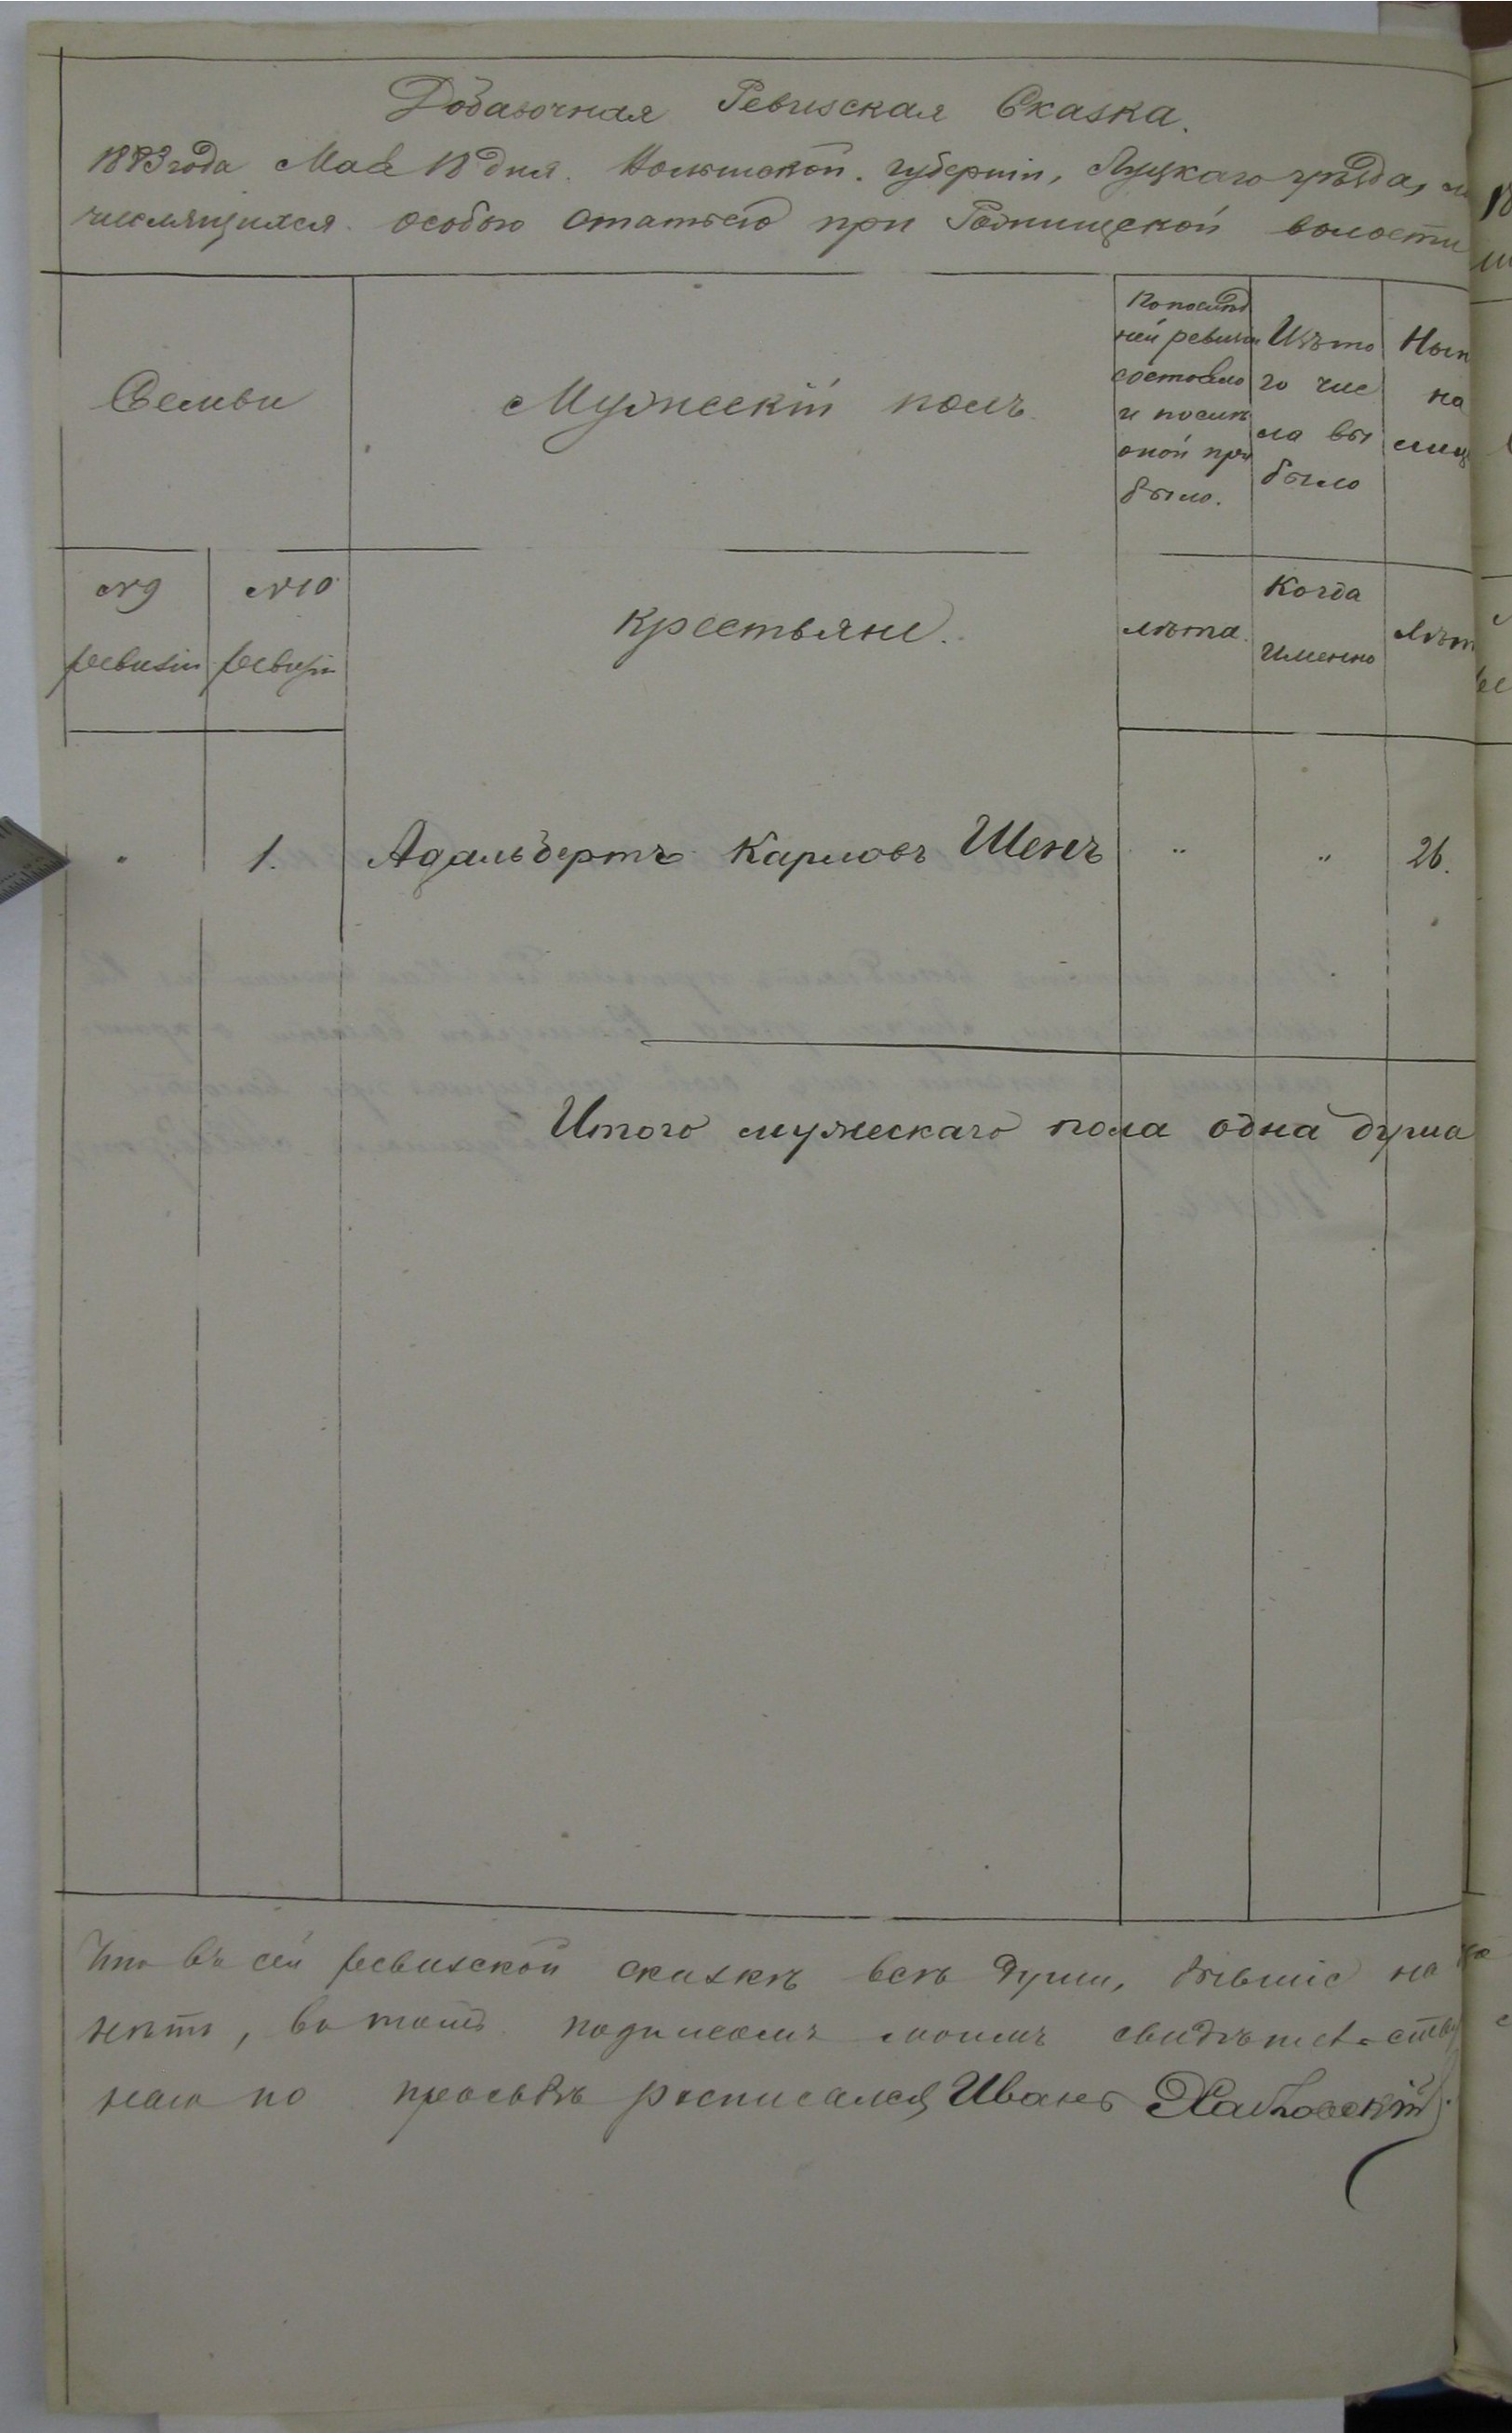 Добавочная Ревизская Сказка.
1883 года Мая 18 дня. Волынской. губернiи, Луцкаго уѣзда,
числящихся особою статьею при Рожищской волости
Семьи
Мужескiй полъ
По послѣд
ней ревизiи
состояло
и послѣ
оной при
было.
Изъ то
го чис
ла вы
было
Нын
на
лиц
№ 9
ревизiи
№ 10
ревизiи
Крестьяне.
лѣта.
Когда
именно
Лѣт
" 1. Адальбертъ Карловъ Шенъ " " 26.
Итого мужескаго пола одна душа
Что въ сей ревизской сказкѣ всѣ души, бывшiе на
нѣтъ, въ томъ подписомъ моимъ свидѣтельству
по просьбѣ росписался Иванъ